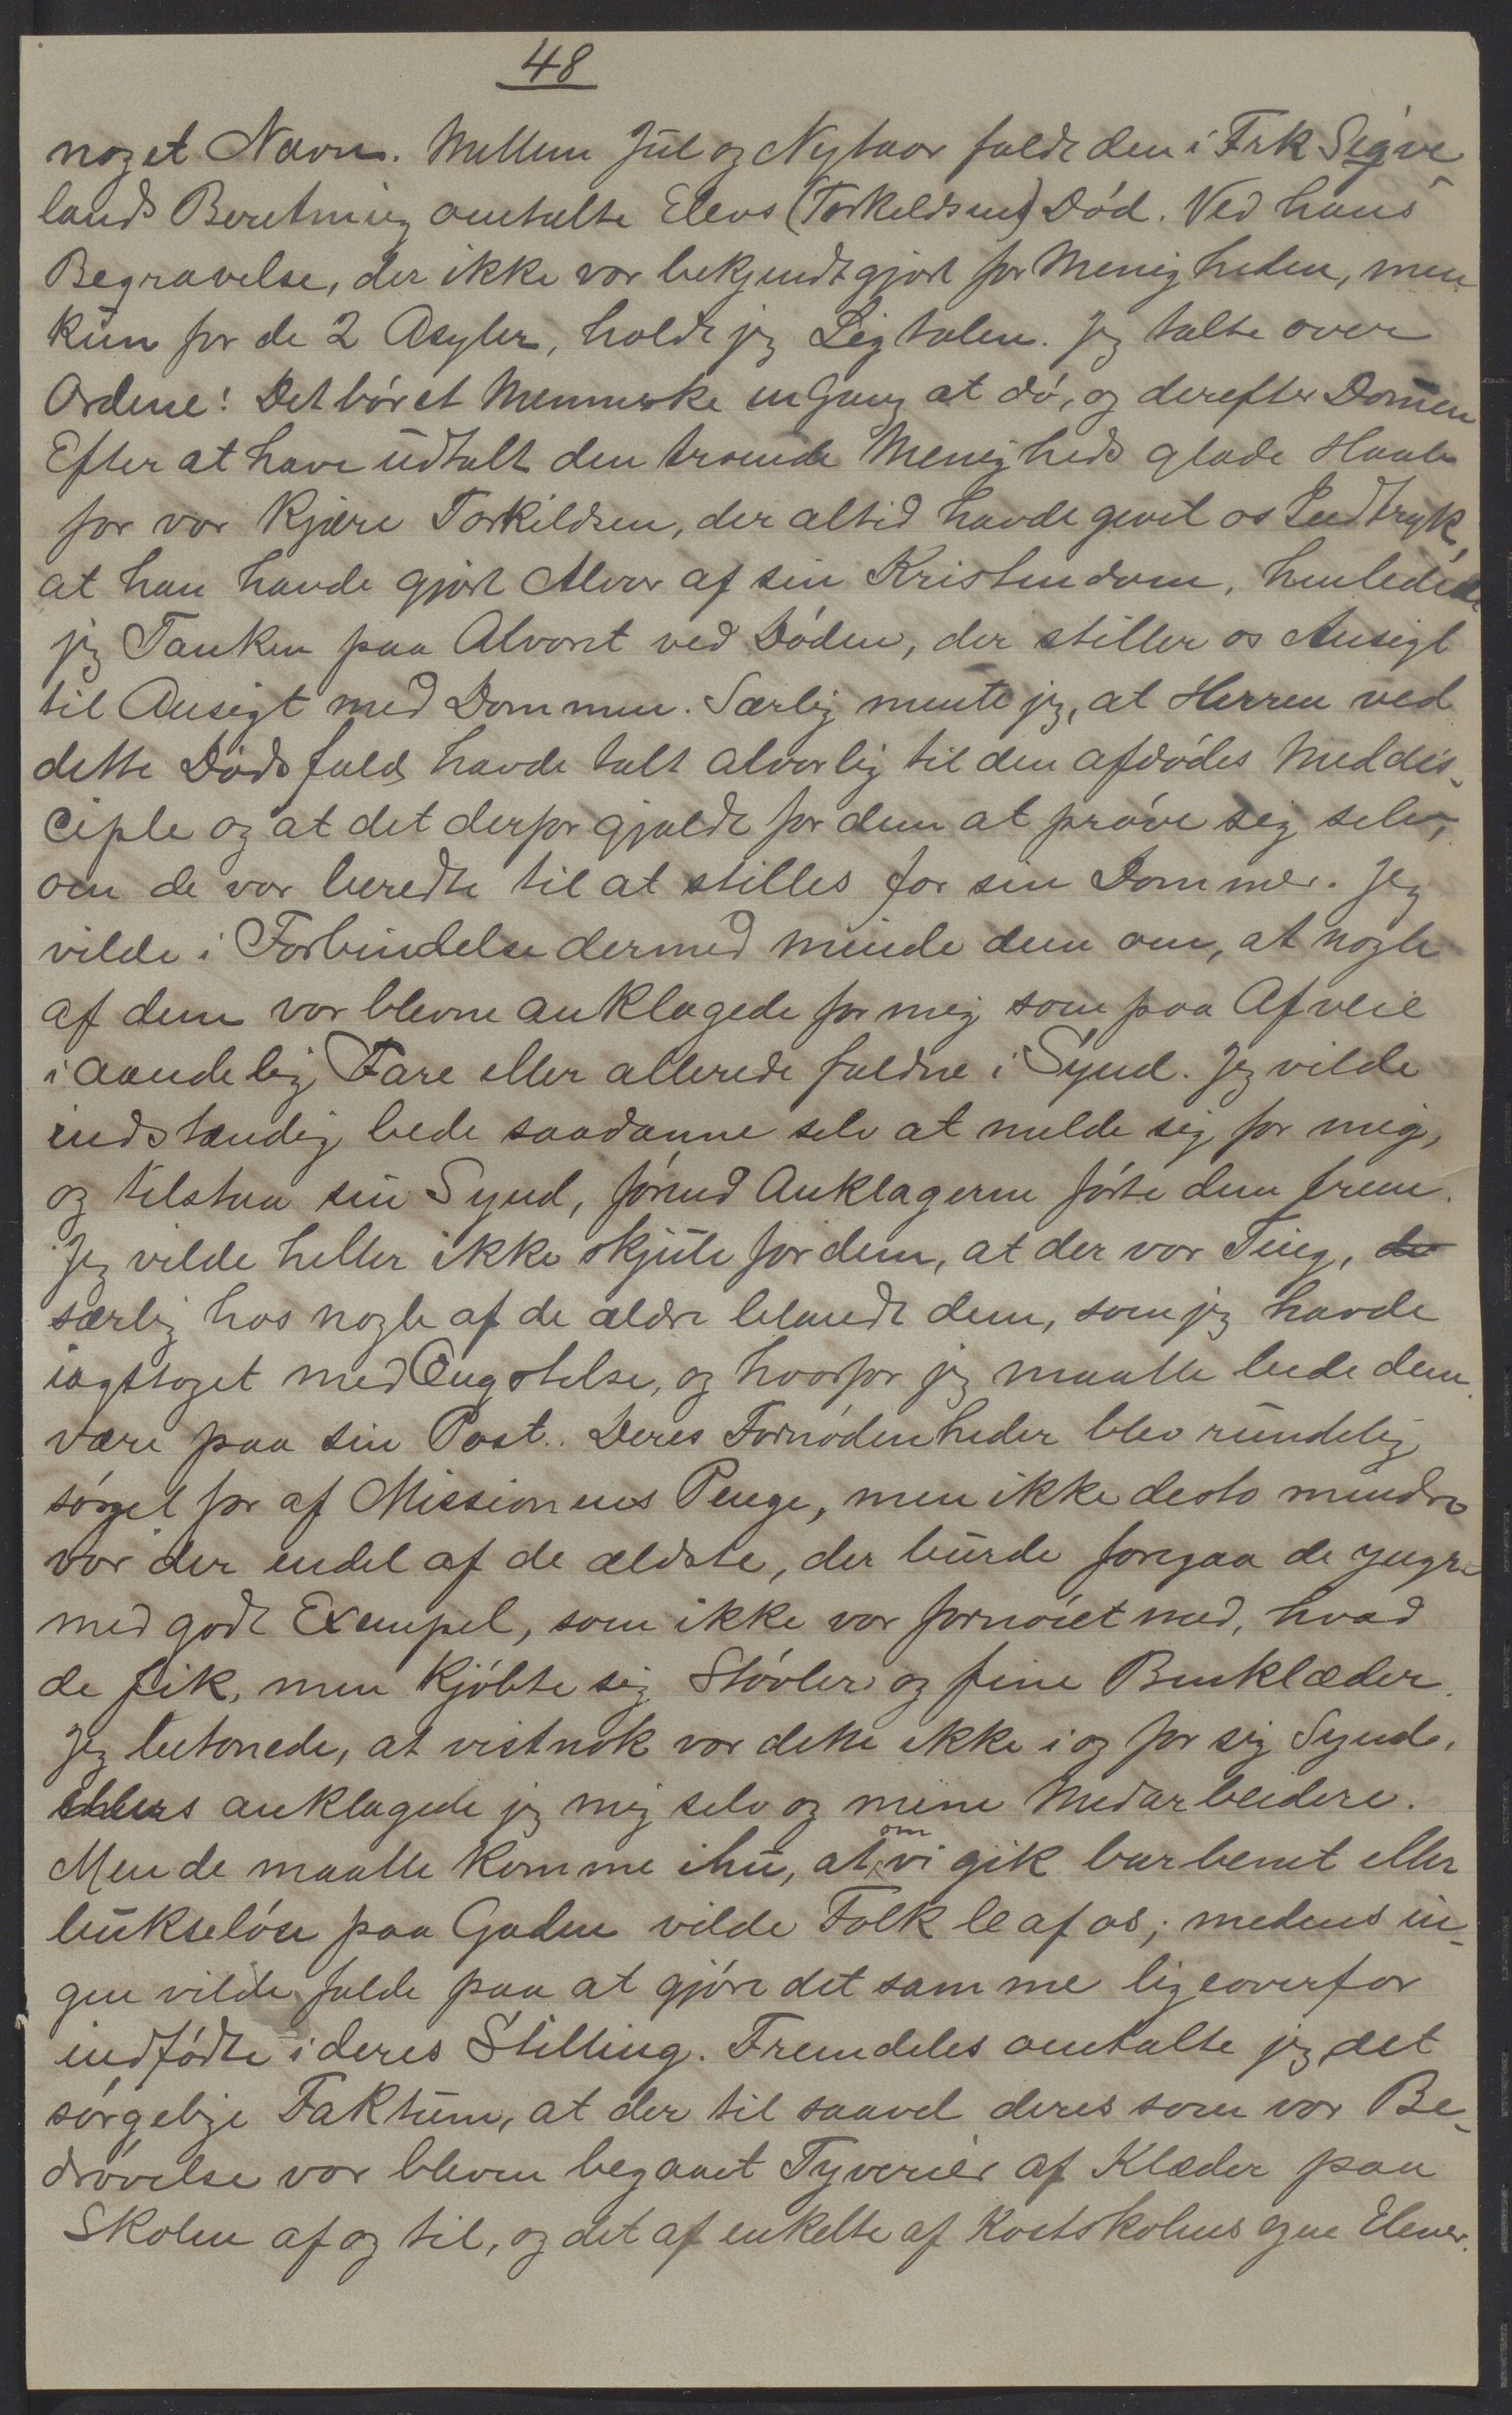 48
noget Navn. Mellem Jul og Nytaar faldt den i Frk Sigve-
lands Beretning omtalte Elevs (Torkildsens) Død. Ved hans
Begravelse, der ikke var bekjendtgjort for Menigheden, men
kun for de 2 Asyler, holdt jeg Ligtalen. Jeg talte over
Ordene: Det bør et Menneske en Gang at dø, og derefter Dommen
Efter at have udtalt den troende Menigheds glade Haab
for vor kjære Torkildsen, der altid havde givet os Indtryk,
at han havde gjort Alvor af sin Kristendom, henledede
jeg Tanken paa Alvoret ved Døden, der stiller os Ansigt
til Ansigt med Dommen. Særlig mente jeg, at Herren ved
dette Dødsfald havde talt alvorlig til den afdødes Meddis-
ciple og at det derfor gjaldt for dem at prøve sig selv,
om de var beredte til at stilles for sin Dommer. Jeg
vilde i Forbindelse dermed minde dem om, at nogle
af dem var blevne anklagede for mig som paa Afveie
i aandelig Fare eller allerede faldne i Synd. Jeg vilde
indstændig bede saadanne selv at melde sig for mig,
og tilstaa sin Synd, førend Anklagerne førte dem frem.
Jeg vilde heller ikke skjule for dem, at der var Ting, de
særlig hos nogle af de ældre blandt dem, som jeg havde
iagttaget med Ængstelse, og hvorfor jeg maatte bede dem
være paa sin Post. Deres Fornødenheder blev rundelig
sørget for af Missionens Penge, men ikke desto mindre
var der endel af de ældste, der burde foregaa de yngre
med godt Exempel, som ikke var fornøiet med, hvad
de fik, men kjøbte sig Støvler og fine Benklæder.
Jeg betonede, at vistnok var dette ikke i og for sig Synd,
ellers anklagede jeg mig selv og mine Medarbeidere.
Men de maatte komme ihu, at om vi gik barbenet eller
bukseløse paa Gaden vilde Folk le af os; medens in-
gen vilde falde paa at gjøre det samme ligeoverfor
indfødte i deres Stilling. Fremdeles omtalte jeg det
sørgelige Faktum, at der til saavel deres som vor Be-
drøvelse var bleven begaaet Tyverier af Klæder paa
Skolen af og til, og det af enkelte af Kostskolens egne Elever.